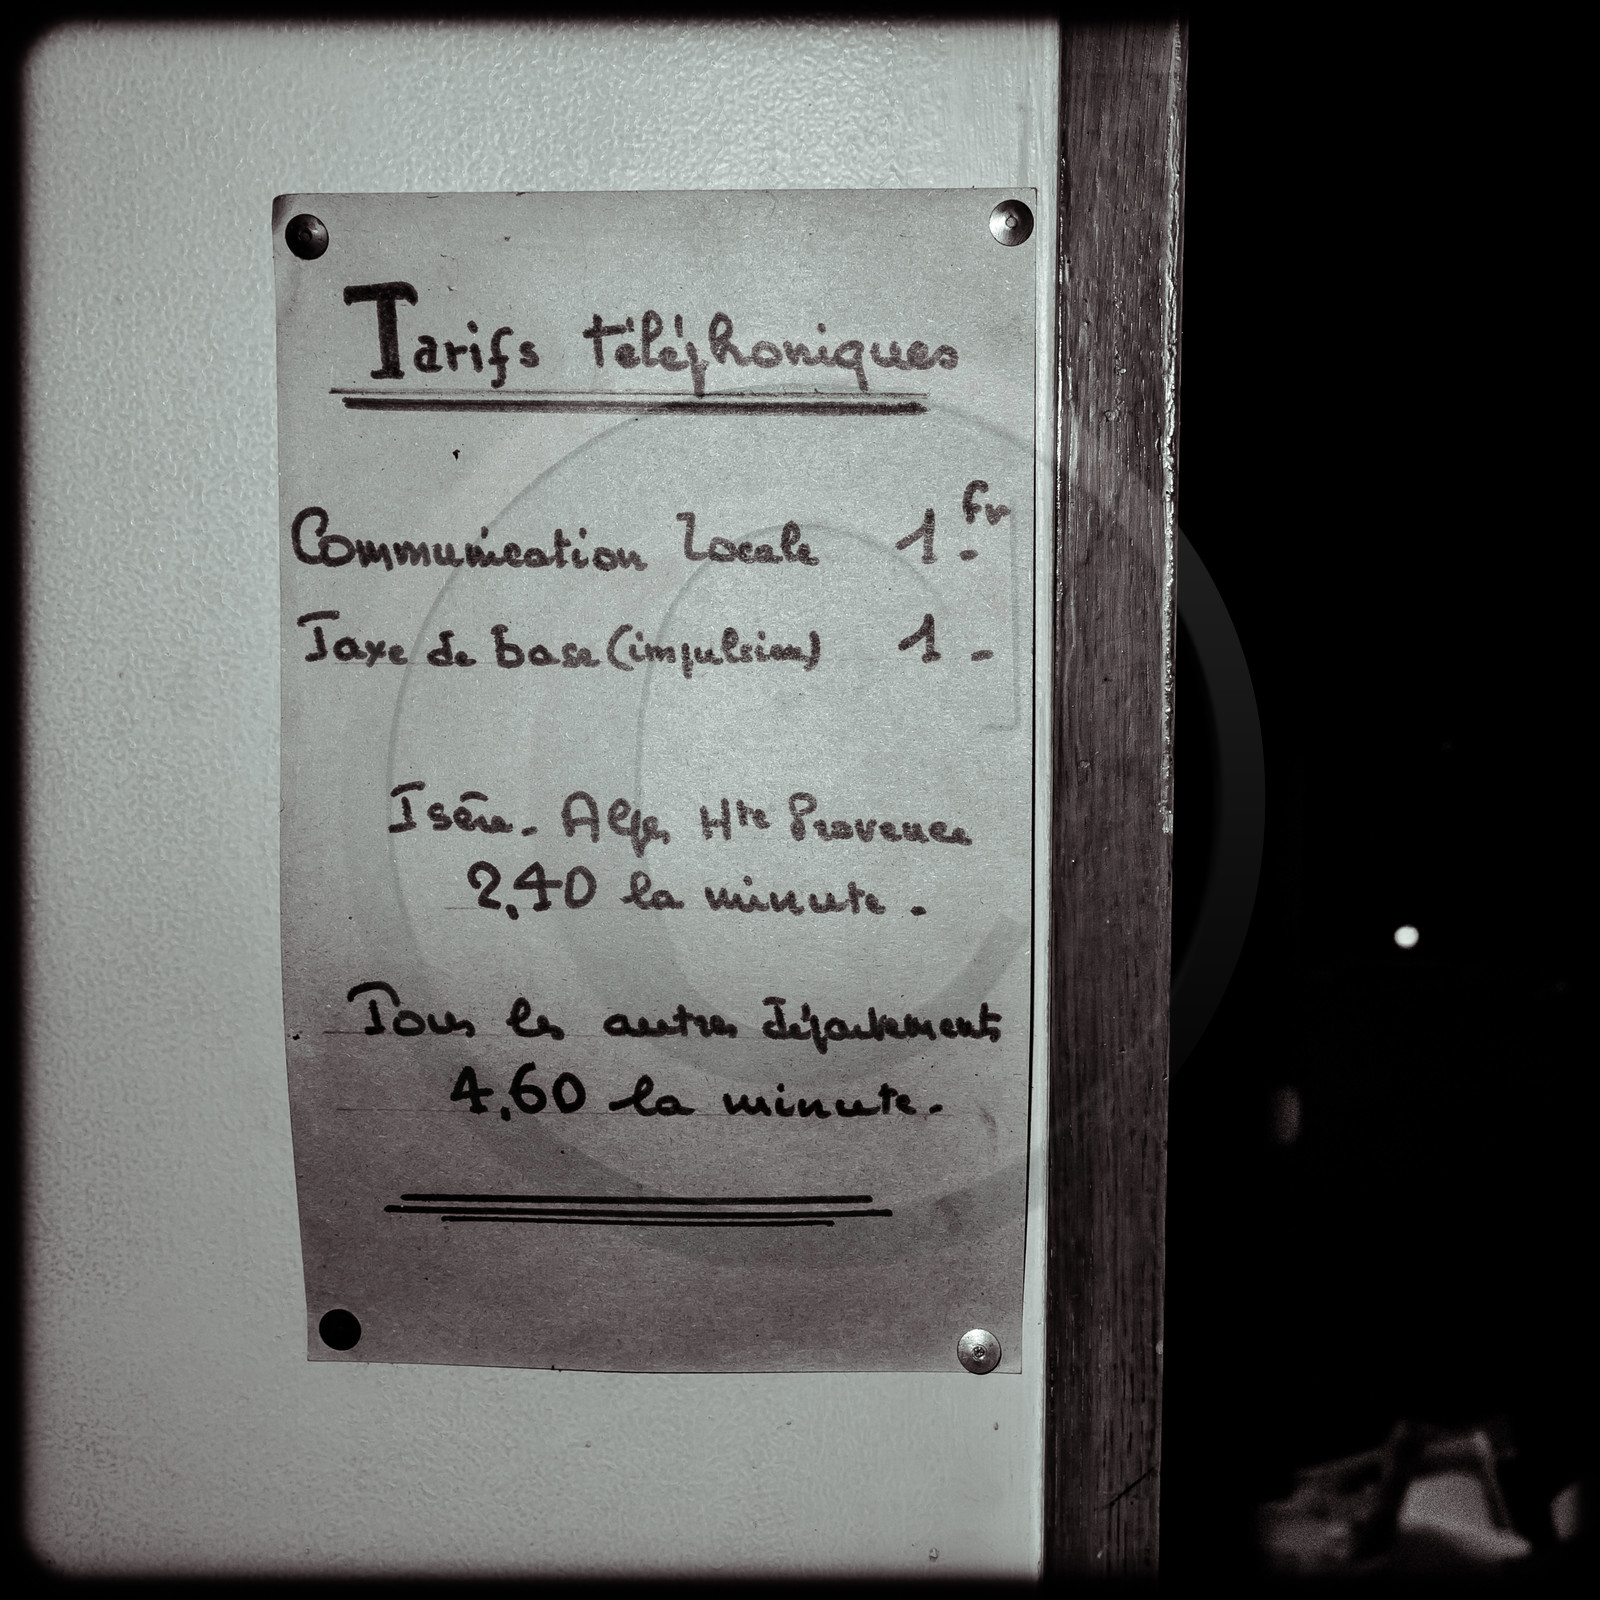 Tarifs téléphoniques
Communication locale 1 fr -
Taxe de base (impulsion) 1 -
Isère. Alpes Hte Provence
2,40 la minute.
Tous les autres départements
4,60 la minute.